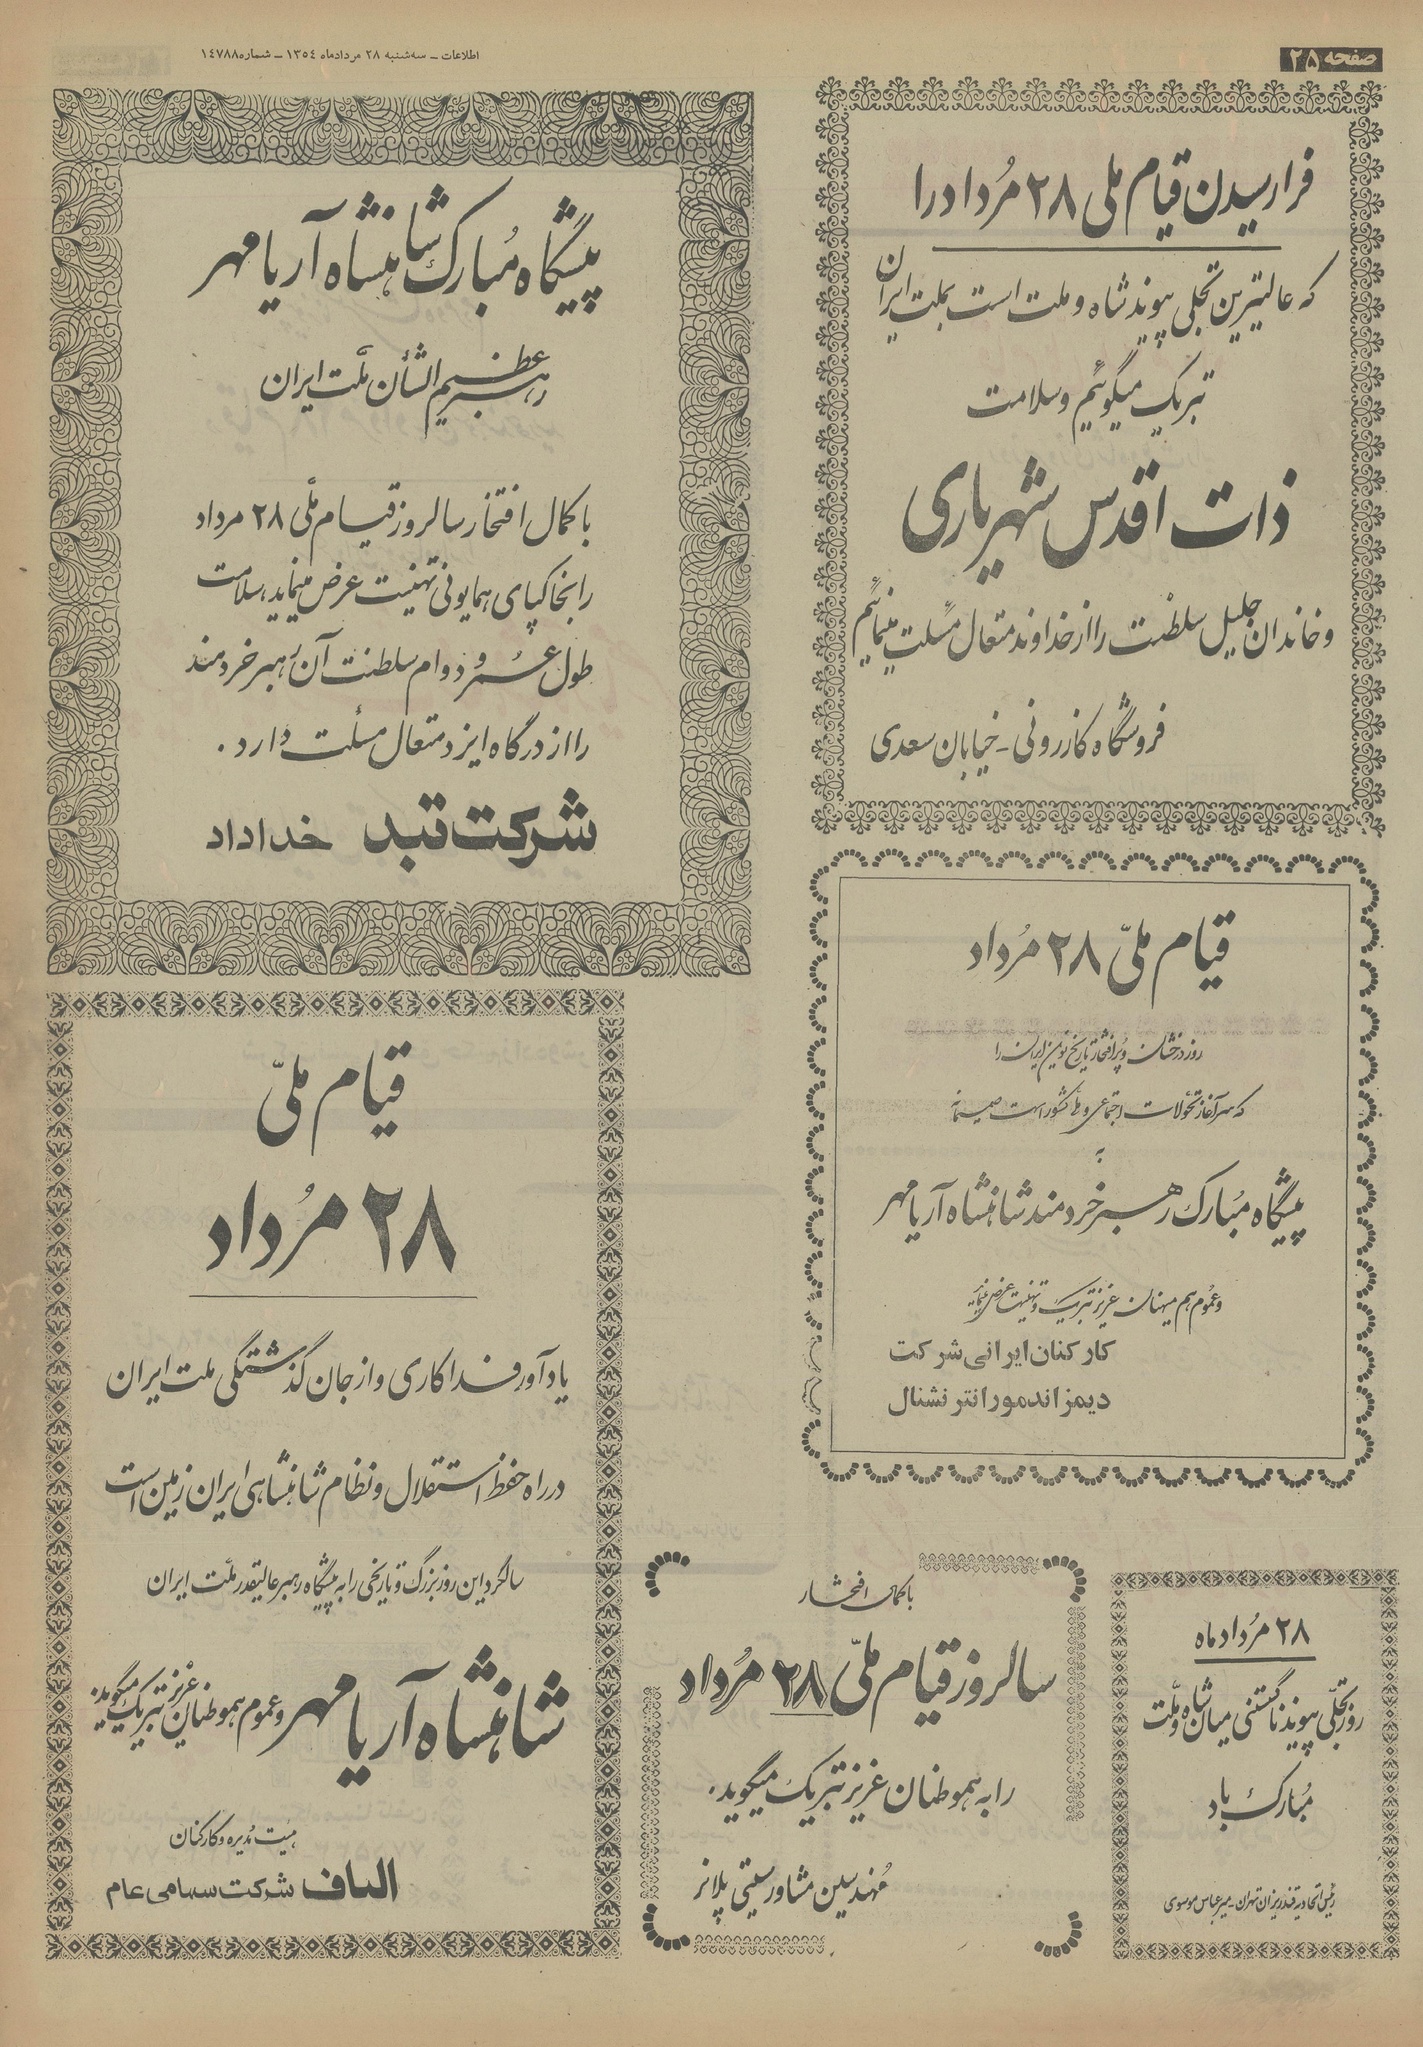 صفحه ۲۵
اطلاعات ــ سه‌شنبه ۲۸ مردادماه ۱۳۵۴ ــ شماره ۱۴۷۸۸
فرارسیدن قیام ملی ۲۸ مُرداد را
که عالیترین تجلی پیوند شاه و ملت است بملت ایران
تبریک میگوئیم و سلامت
ذات اقدس شهریاری
و خاندان جلیل سلطنت را از خداوند متعال مسئلت مینمائیم
فروشگاه کازرونی ـ خیابان سعدی
پیشگاه مُبارک شاهنشاه آریامهر
رهبر عظیم الشأن ملّت ایران
با کمال افتخار سالروز قیام ملّی ۲۸ مرداد
را بخاکپای همایونی تهنیت عرض مینماید، سلامت
طول عمر و دوام سلطنت آن رهبر خردمند
را از درگاه ایزد متعال مسئلت دارد .
شرکت تبد خداداد
قیام ملّی ۲۸ مُرداد
روز درخشان و پرافتخار تاریخ نوین ایران را
که سرآغاز تحولات اجتماعی و ملی کشور است صمیمانه
به
پیشگاه مُبارک رهبر خردمند شاهنشاه آریامهر
و عُموم هم میهنان عزیز تبریک و تهنیت عرض مینماید
کارکنان ایرانی شرکت
دیمز اند مور انترنشنال
قیام ملّی
۲۸ مُرداد
یادآور فداکاری و از جان گذشتگی ملت ایران
در راه حفظ استقلال و نظام شاهنشاهی ایران زمین است
سالگرد این روز بزرگ و تاریخی را به پیشگاه رهبر عالیقدر ملّت ایران
شاهنشاه آریامهر و عموم هموطنان عزیز تبریک میگوید.
هیئت مُدیره و کارکنان
الیاف شرکت سهامی عام
با کمال افتخار
سالروز قیام ملّی ۲۸ مُرداد
را به هموطنان عزیز تبریک میگوید .
مُهندسین مشاور سیتی پلانر
۲۸ مُردادماه
روز تجلّی پیوند ناگسستنی میان شاه و ملّت
مُبارک باد
رئیس اتحادیه قندریزان تهران ـ میرعباس موسوی